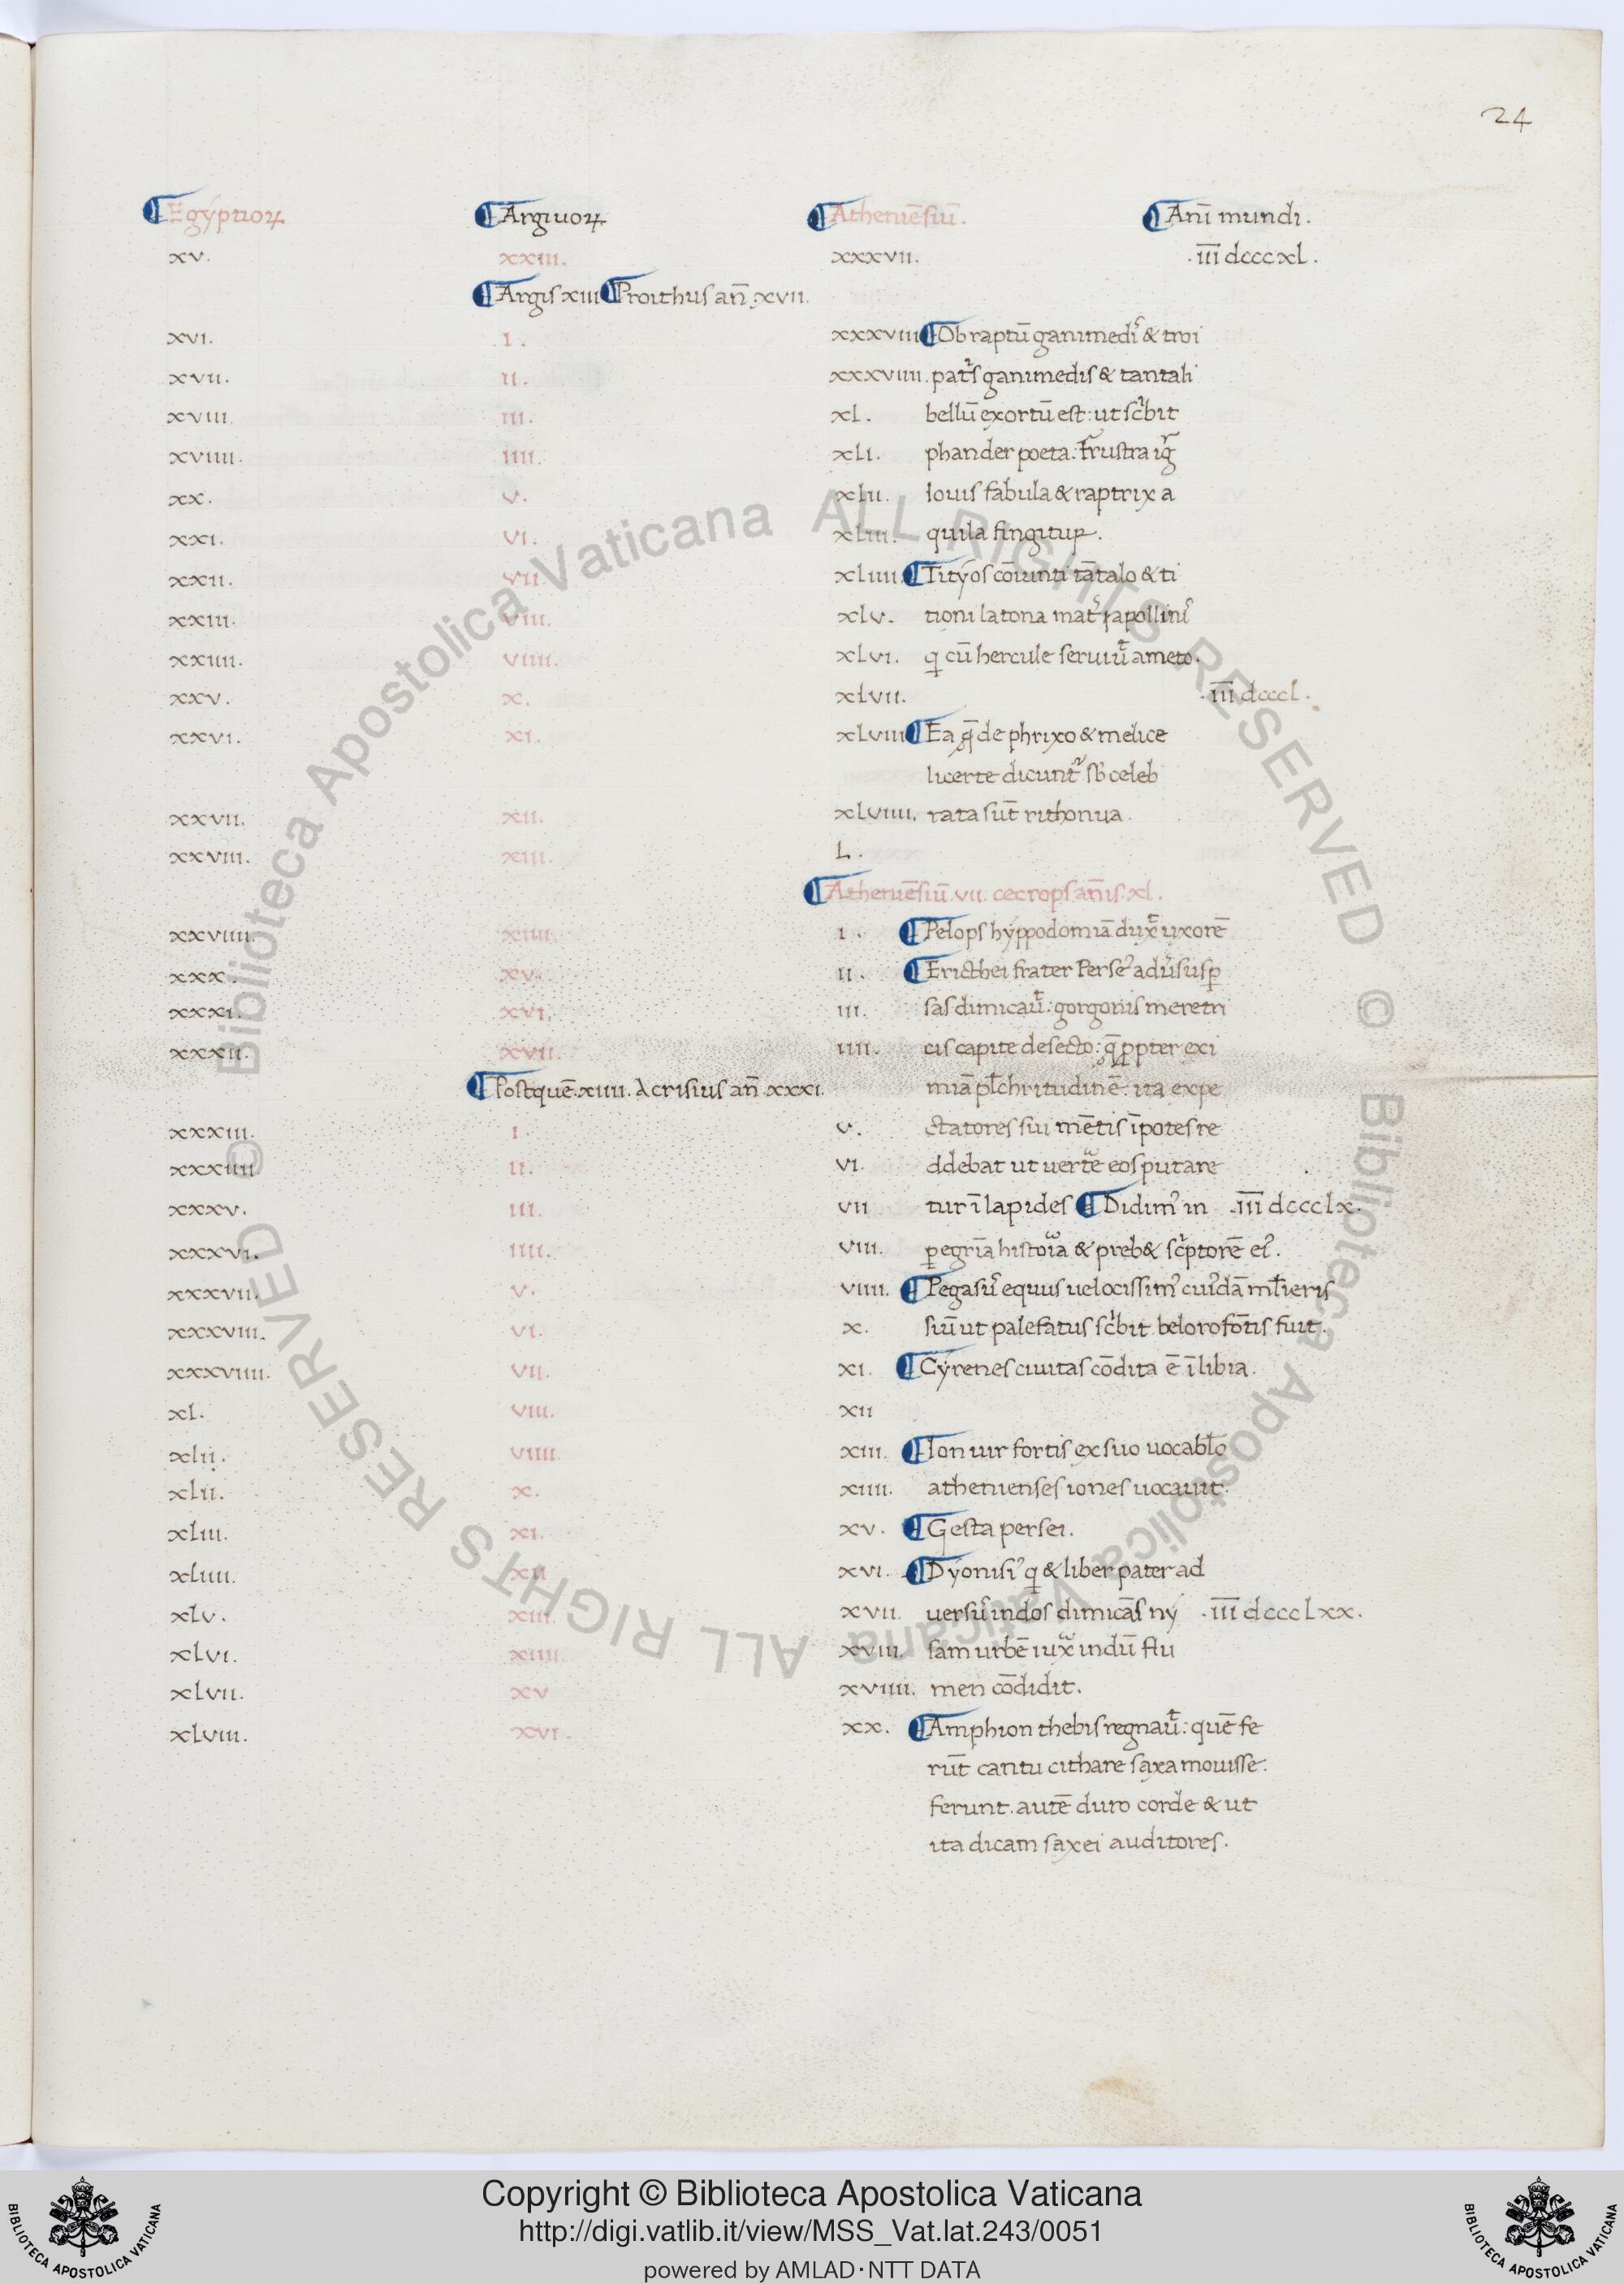 24
¶Egyptioꝝ ¶Argiuoꝝ ¶Atheniēsiū. ¶Anī mundi.
xv. xxiii. xxxvii. .iii̅ dcccxl.
¶Argis xiii ¶Proithus an̄ .xvii.
xvi. i. xxxviii ¶Ob raptū ganimedis & troi
xvii. ii. xxxviiii. pat's ganimedis & tantali
xviii. iii. xl. bellū exortū est: ut sc'bit
xviiii. iiii. xli. phander poeta. frustra ig̅
xx. v. xlii. iouis fabula & raptrix a
xxi. vi. xliii. quila fingitur.
xxii. vii. xliiii. ¶Tityos cōiunti tātalo & ti
xxiii. viii. xlv. tioni latona mat' apollinis
xxiiii. viiii. xlvi. q cū hercule seruiūt ameto.
xxv. x. xlvii. .iii̅ dcccl.
xxvi. xi. xlviii ¶Ea q̄ de phrixo & melice
licerte dicunt' sb celeb
xxvii. xii. xlviiii. rata sūt rithonua.
xxviii. xiii. L.
¶Atheniēsiū .vii. cecrops an̄is .xl.
xxviiii. xiiii. i. ¶Pelops hyppodomiā dux̄ uxorē
xxx. xv. ii. ¶Ericthei frater Perse' adu'sus ꝑ
xxxi. xvi. iii. sas dimicau̅t: gorgonis meretri
xxxii. xvii. iiii. cis capite desecto: q̄ ꝓpter exi
¶Postquē .xiiii. Acrisius an̄ .xxxi. miā pl̄chritudinē: ita expe
xxxiii. i. v. ctatores sui mētis īpotes re
xxxiiii ii. vi. ddebat ut uerte eos putare
xxxv. iii. vii tur ī lapides ¶Didim' in .iii̅ dccclx.
xxxvi. iiii. viii. ꝑegrīa historia & preb& sc'ptorē ei'.
xxxvii. v. viiii. ¶Pegasus equus uelocissim' cui'dā ml̄ieris
xxxviii. vi. x. siū ut palefatus sc'bit belorofōtis fuit.
xxxviiii. vii. xi. ¶Cyrenes ciuitas cōdita ē ī libia.
xl. viii. xii
xlii. viiii. xiii. ¶Ion uir fortis ex suo uocabl̄o
xlii. x. xiiii. athenienses iones uocauit.
xliii. xi. xv. ¶Gesta persei.
xliiii. xii xvi. ¶Dyonisi' q & liber pater ad
xlv. xiii. xvii. uersū indos dimicās ny .iii̅ dccclxx.
xlvi. xiiii. xviii. sam urbē iux̄ indū flu
xlvii. xv xviiii. men cōdidit.
xlviii. xvi. xx. ¶Amphion thebis regnau̅t: quē fe
rūt cantu cithare saxa mouisse.
ferunt. autē duro corde & ut
ita dicam saxei auditores.
© Biblioteca Apostolica Vaticana ALL RIGHTS RESERVED © Biblioteca Apostolica Vaticana ALL RIGHTS RESERVED
Copyright © Biblioteca Apostolica Vaticana
http://digi.vatlib.it/view/MSS_Vat.lat.243/0051
powered by AMLAD·NTT DATA
BIBLIOTECA APOSTOLICA VATICANA
BIBLIOTECA APOSTOLICA VATICANA